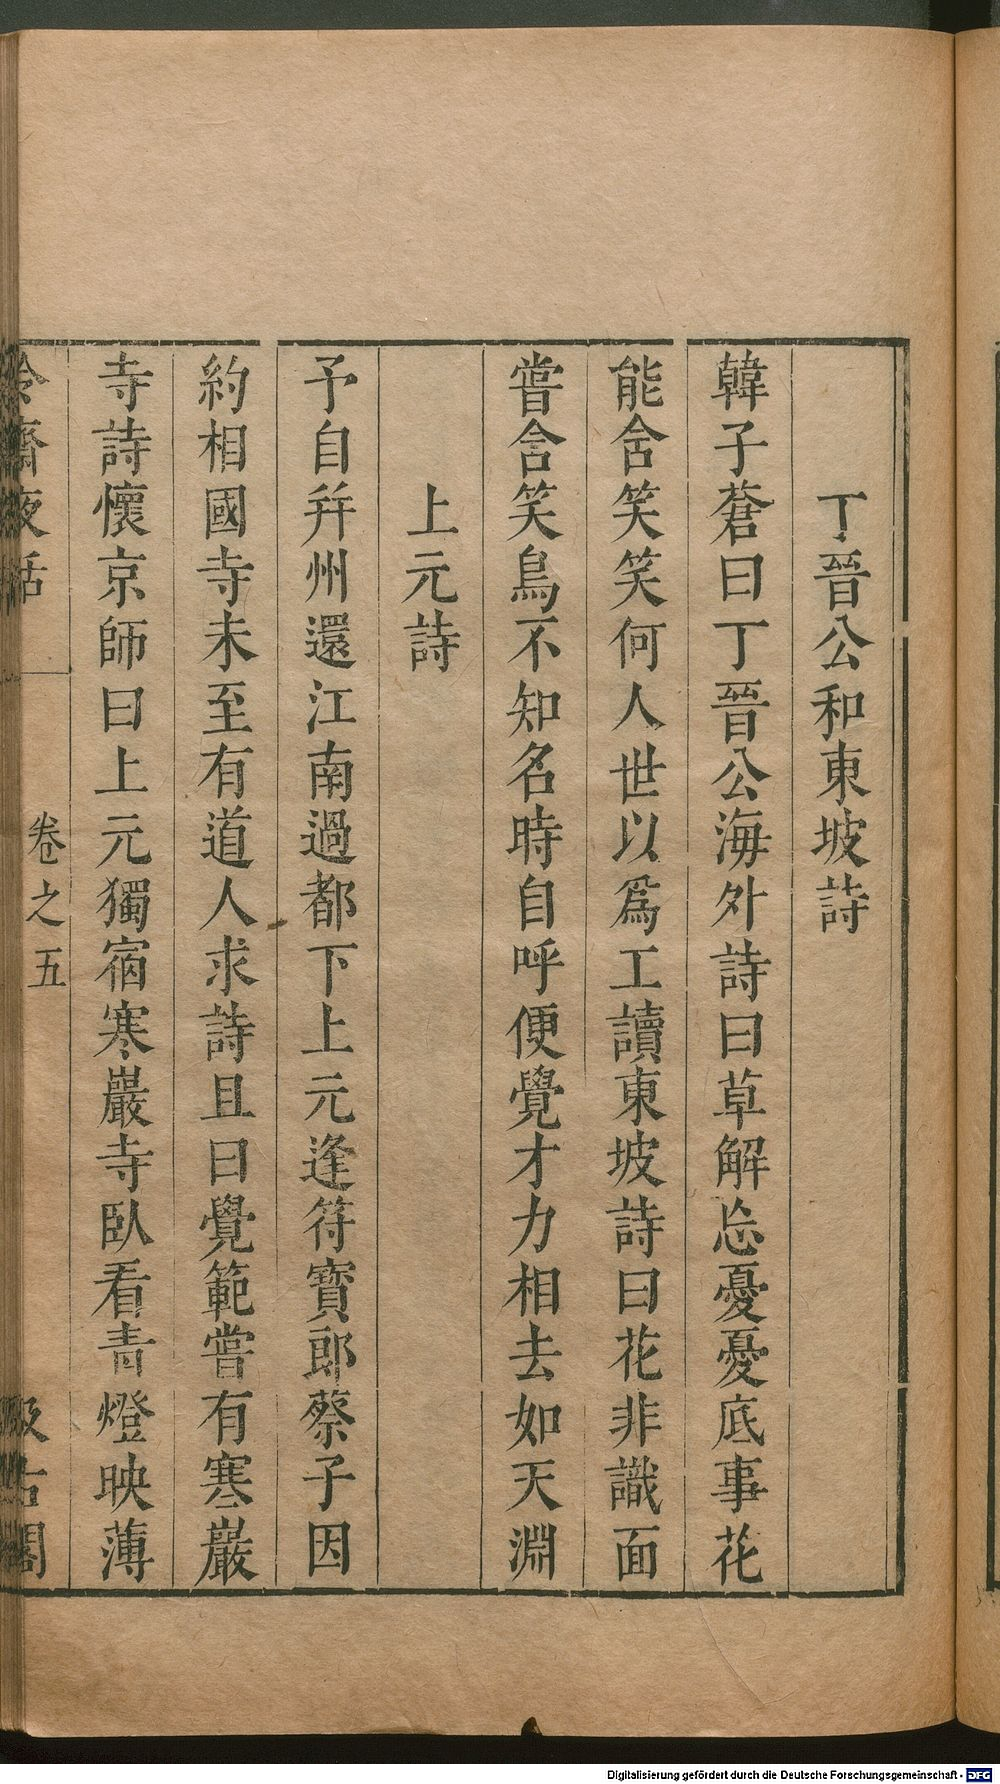 丁晉公和東坡詩
韓子蒼曰丁晉公海外詩曰草解忘憂憂底事花
能含笑笑何人世以爲工讀東坡詩曰花非識面
嘗含笑鳥不知名時自呼便覺才力相去如天淵
上元詩
予自幷州還江南過都下上元逢符寳郎蔡子因
約相國寺未至有道人求詩且曰覺範嘗有寒巖
寺詩懷京師曰上元獨宿寒巖寺臥看靑燈映薄
冷齋夜話 卷之五 汲古閣
Digitalisierung gefördert durch die Deutsche Forschungsgemeinschaft - DFG